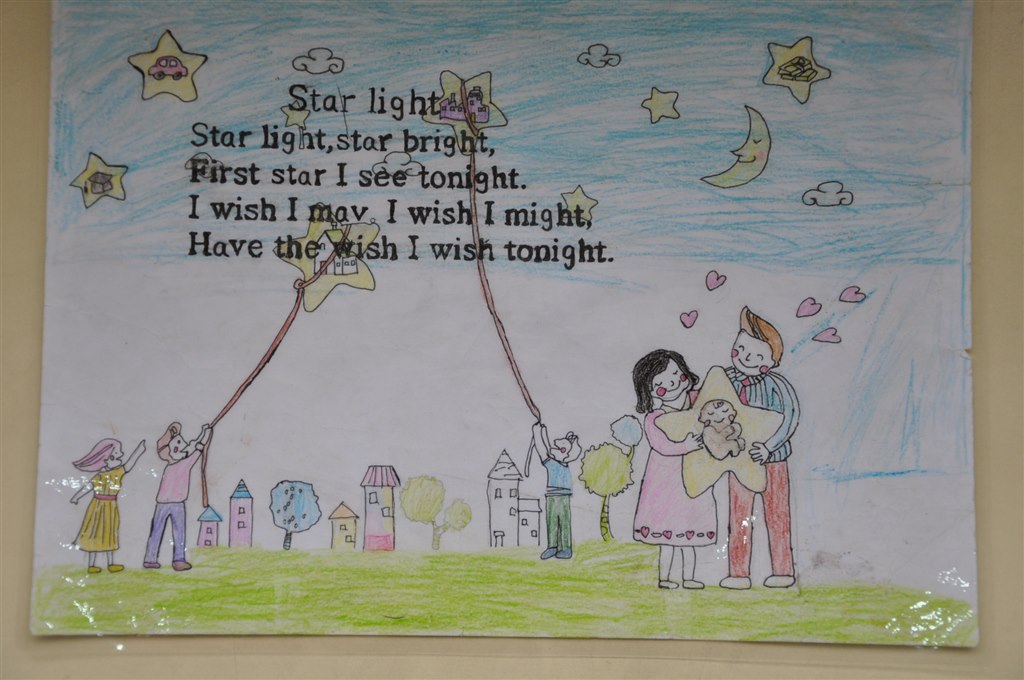 Star light
Star light,star bright,
First star I see tonight.
I wish I may, I wish I might,
Have the wish I wish tonight.